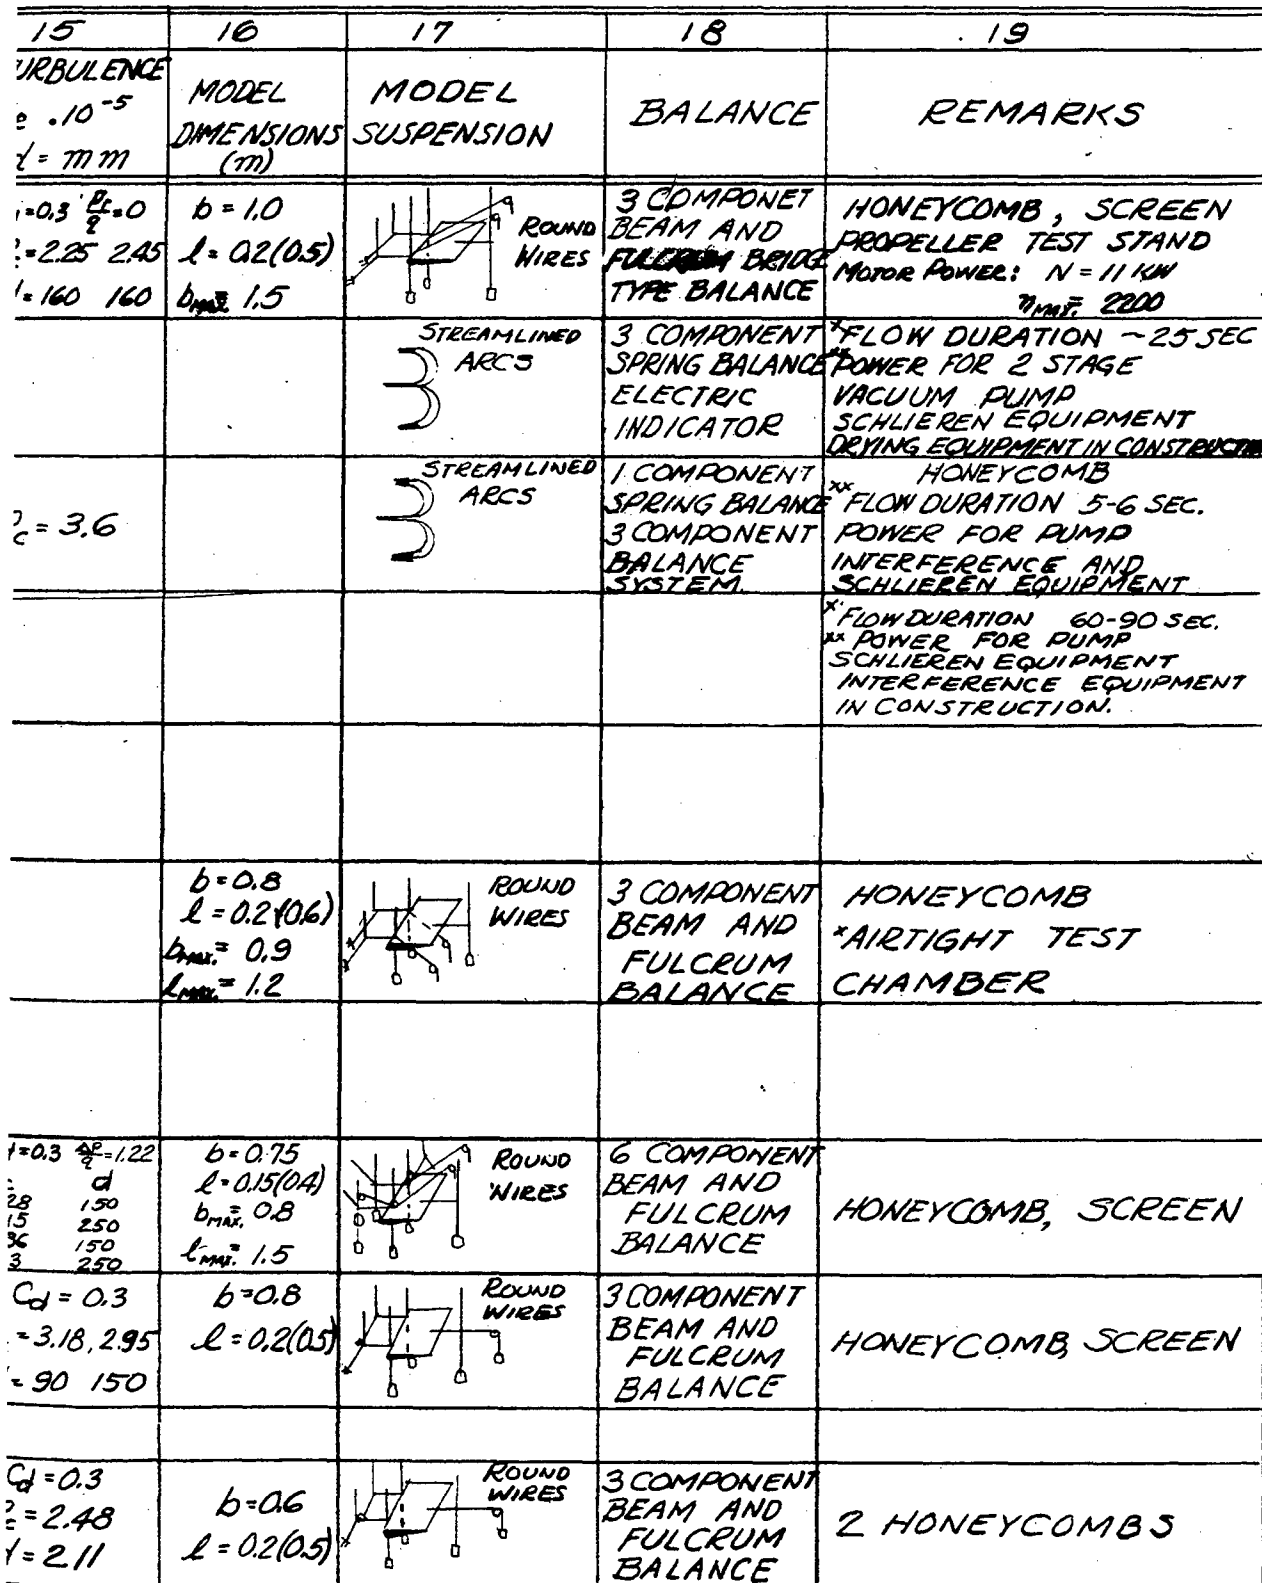 15 16 17 18 19
URBULENCE
.10⁻⁵
= mm
MODEL
DIMENSIONS
(m)
MODEL
SUSPENSION
BALANCE
REMARKS
=0.3 =0
=2.25 2.45
=160 160
b=1.0
l=0.2(0.5)
bMAX.=1.5
ROUND
WIRES
3 COMPONET
BEAM AND
FULCRUM BRIDGE
TYPE BALANCE
HONEYCOMB, SCREEN
PROPELLER TEST STAND
MOTOR POWER: N=11 KW
MAX.= 2200
STREAMLINED
ARCS
3 COMPONENT
SPRING BALANCE
ELECTRIC
INDICATOR
*FLOW DURATION ~25 SEC
**POWER FOR 2 STAGE
VACUUM PUMP
SCHLIEREN EQUIPMENT
DRYING EQUIPMENT IN CONSTRUCTI
c=3.6
STREAMLINED
ARCS
1 COMPONENT
SPRING BALANCE
3 COMPONENT
BALANCE
SYSTEM.
HONEYCOMB
xx FLOW DURATION 5-6 SEC.
POWER FOR PUMP
INTERFERENCE AND
SCHLIEREN EQUIPMENT
x FLOW DURATION 60-90 SEC.
xx POWER FOR PUMP
SCHLIEREN EQUIPMENT
INTERFERENCE EQUIPMENT
IN CONSTRUCTION.
b=0.8
l=0.2(0.6)
bMAX.=0.9
lMAX.=1.2
ROUND
WIRES
3 COMPONENT
BEAM AND
FULCRUM
BALANCE
HONEYCOMB
*AIRTIGHT TEST
CHAMBER
=0.3 =1.22
d
28 150
15 250
36 150
3 250
b=0.75
l=0.15(0.4)
bMAX.=0.8
lMAX.=1.5
ROUND
WIRES
6 COMPONENT
BEAM AND
FULCRUM
BALANCE
HONEYCOMB, SCREEN
Cd=0.3
=3.18, 2.95
=90 150
b=0.8
l=0.2(0.5)
ROUND
WIRES
3 COMPONENT
BEAM AND
FULCRUM
BALANCE
HONEYCOMB, SCREEN
Cd=0.3
=2.48
=211
b=0.6
l=0.2(0.5)
ROUND
WIRES
3 COMPONENT
BEAM AND
FULCRUM
BALANCE
2 HONEYCOMBS